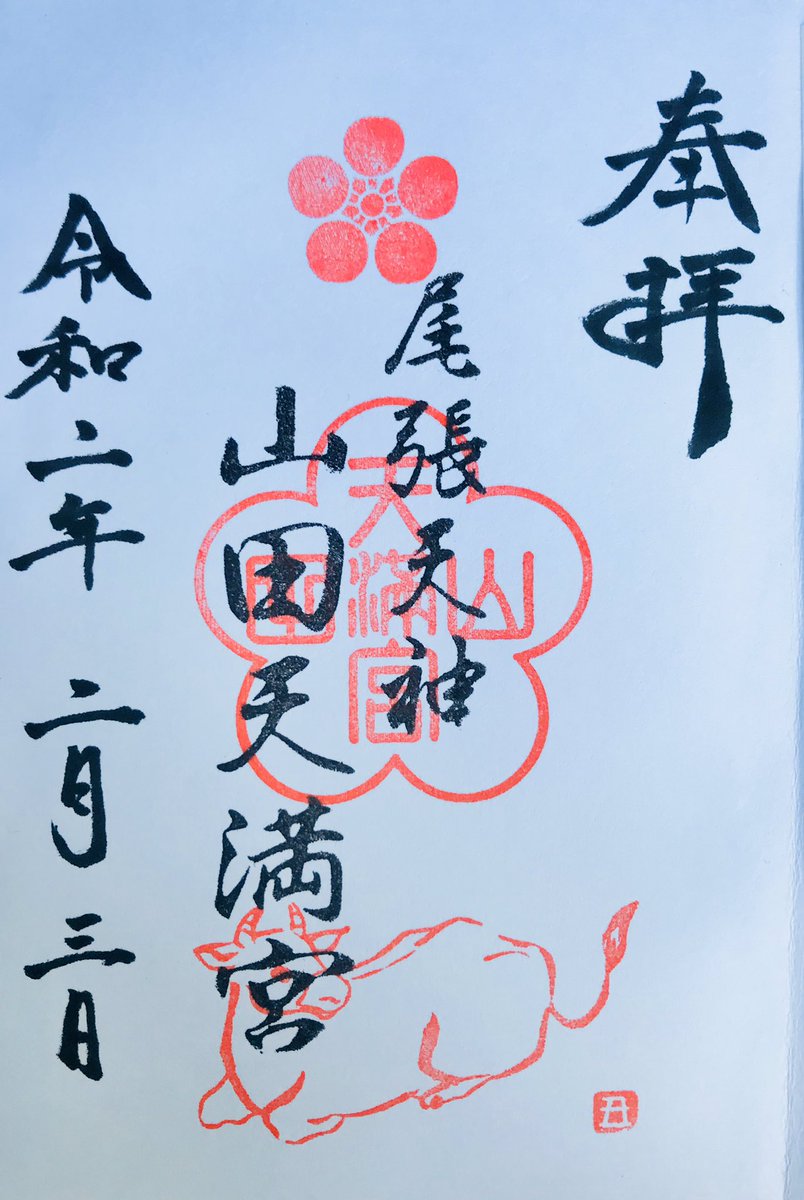 奉拝
尾張天神
山田天満宮
令和二年 二月 三日
山田
天満宮
丑